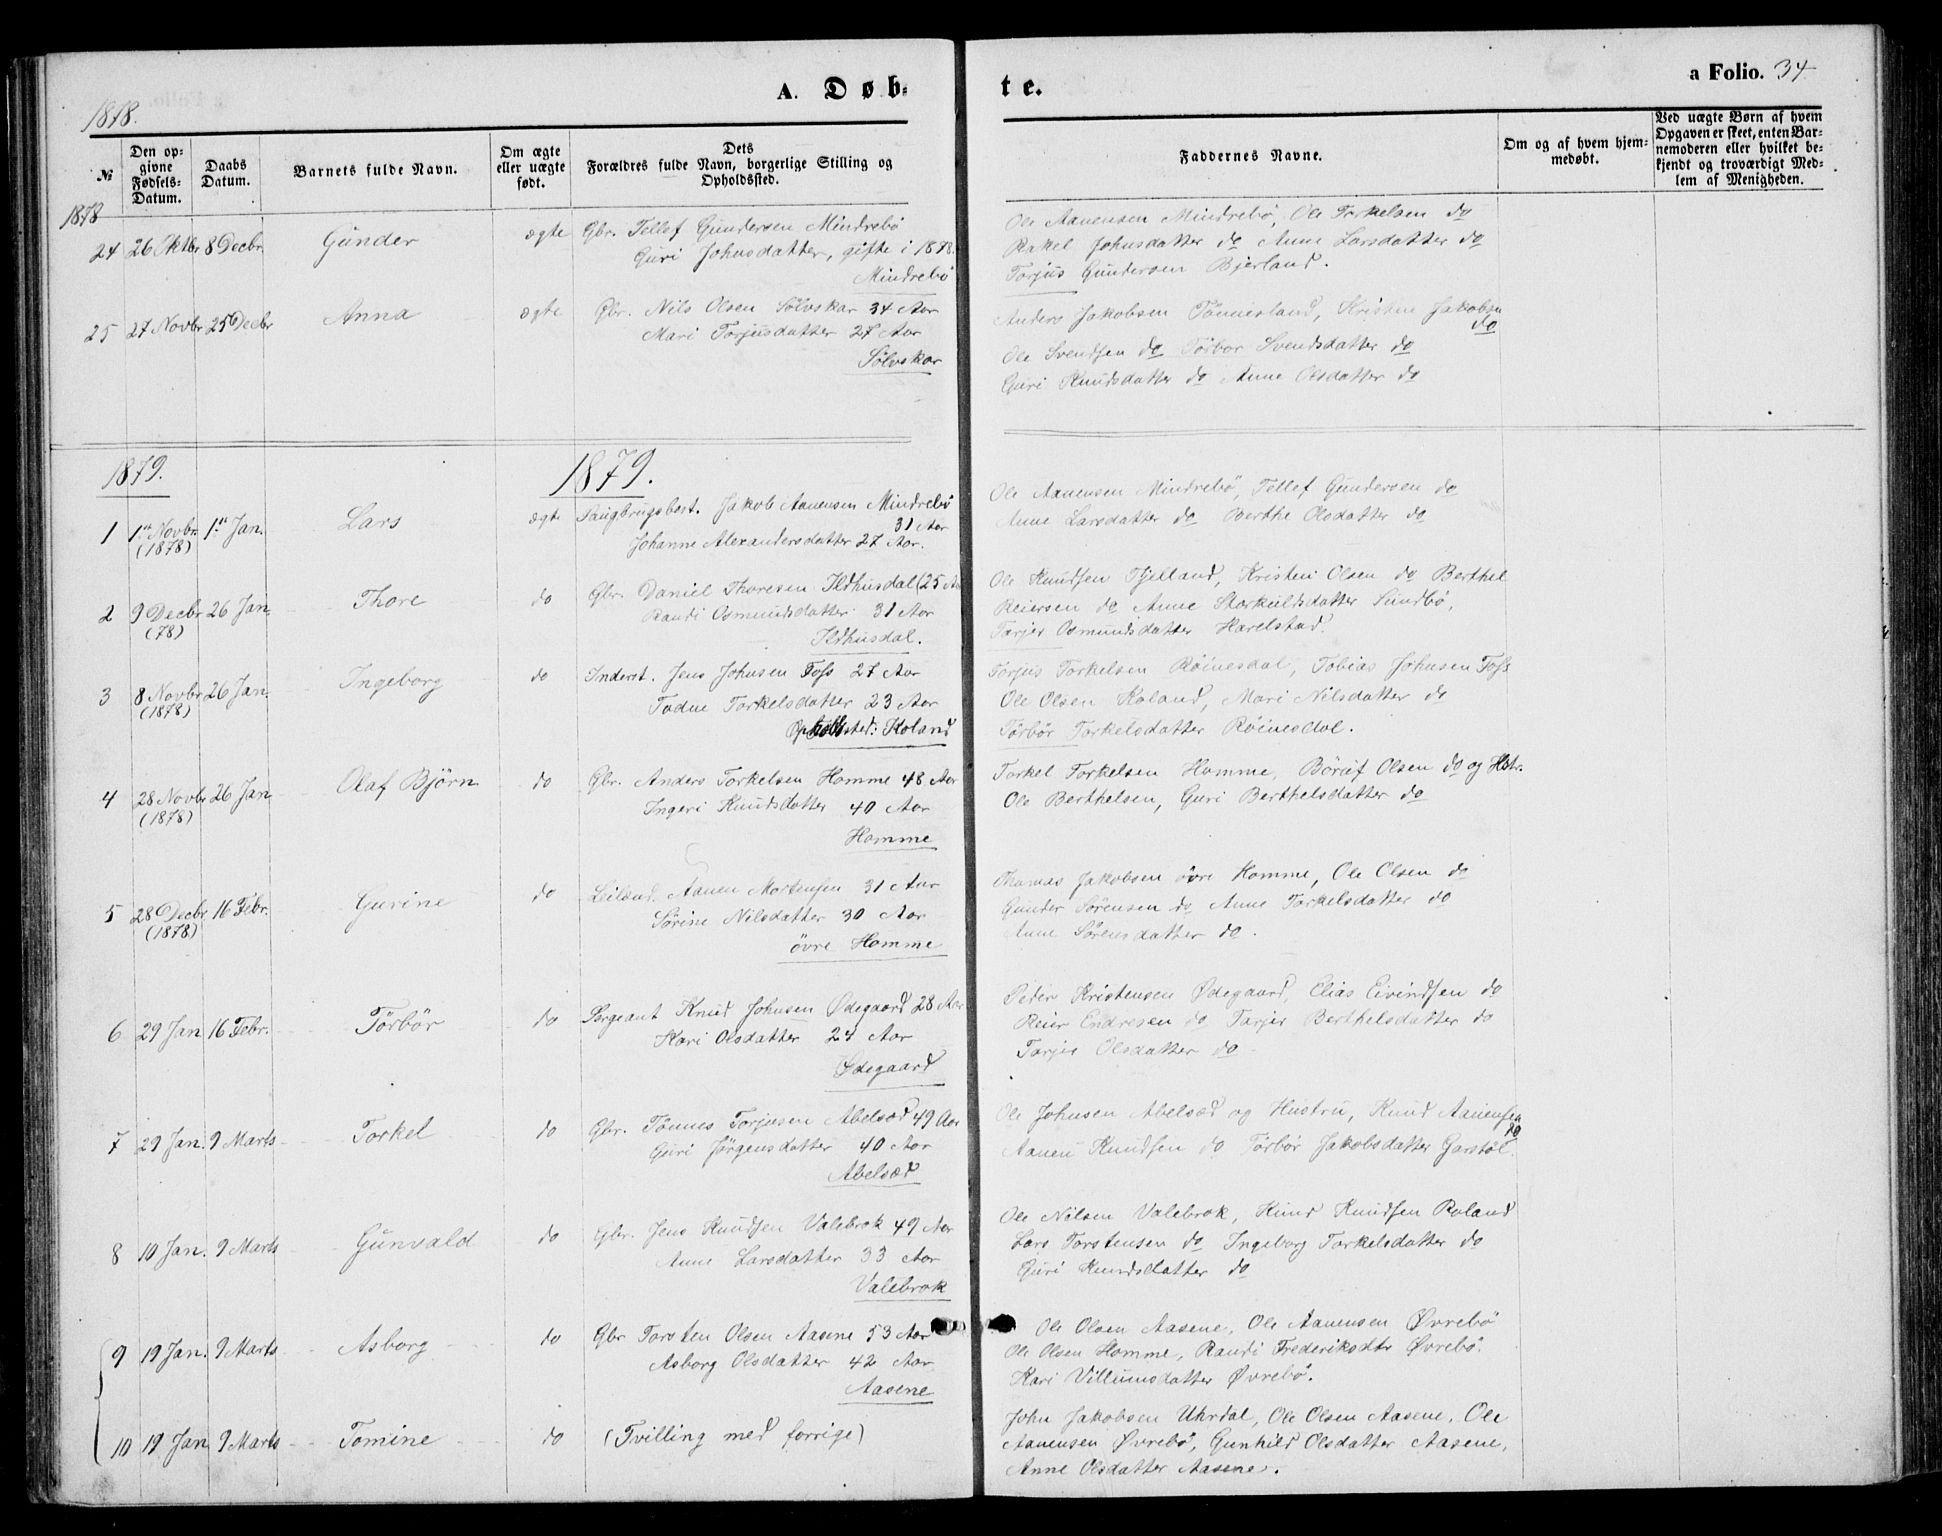 A. Døb-
te.
a Folio. 34
1878.
№
Den op-
givne
Fødsels-
Datum.
Daabs
Datum.
Barnets fulde Navn.
Om ægte
eller uægte
født.
Dets
Forældres fulde Navn, borgerlige Stilling og
Opholdssted.
Faddernes Navne.
Om og af hvem hjem-
medøbt.
Ved uægte Børn af hvem
Opgaven er skeet, enten Bar-
nemoderen eller hvilket be-
kjendt og troværdigt Med-
lem af Menigheden.
1878
24 26 Oktbr 8 Decbr. Gunder ægte Gbr. Tellef Gundersen Mindrebö
Guri Johnsdatter, gifte i 1878.
Mindrebö
Ole Aanensen Mindrebö, Ole Torkelsen do
Rakel Johnsdatter do Anne Larsdatter do
Torjus Gundersen Bjerland.
25 27 Novbr 25 Decbr Anna ægte Gbr. Nils Olsen Sölvskar 34 Aar
Mari Torjusdatter 27 Aar
Sölvskar
Anders Jakobsen Tönnesland, Kristine Jakobsen
do
Ole Svendsen do Törbor Svendsdatter do
Guri Knudsdatter do Anne Olsdatter do
1879.
1879.
1 1ste Novbr. 1ste Jan. Lars ægte Saugbrugsbest. Jakob Aanensen Mindrebö
(1878)
31 Aar
Johanne Alexandersdatter 27 Aar.
Ole Aanensen Mindrebö, Tellef Gundersen do
Anne Larsdatter do Berthe Olsdatter do
2 9 Decbr 26 Jan. Thore do Gbr. Daniel Thoresen Ildhusdal (25 Aar
(78)
Randi Osmundsdatter 31 Aar
Ildhusdal.
Ole Knudsen Fjelland, Kristen Olsen do Berthel
Reiersen do Anne Storkulsdatter Sundbö,
Tarjer Osmundsdatter Harelstad.
3 8 Novbr 26 Jan. Ingeborg do Inderst. Jens Johnsen Foss 27 Aar
(1878)
Tadne Torkelsdatter 23 Aar
Opholdssted: Roland
Torjus Torkelsen Röinesdal, Tobias Johnsen Foss
Ole Olsen Roland, Mari Nilsdatter do
Törbör Torkelsdatter Röinesdal.
4 28 Novbr 26 Jan Olaf Björn do Gbr. Anders Torkelsen Homme 48 Aar
(1878)
Ingeri Knudsdatter 40 Aar
Homme
Torkel Torkelsen Homme, Böruf Olsen do og Hstr.
Ole Berthelsen, Guri Berthelsdatter do
5 28 Decbr 16 Febr. Gurine do Leilænd. Aanen Mortensen 31 Aar
(1878)
Sörine Nilsdatter 30 Aar
övre Homme
Thomas Jakobsen övre Homme, Ole Olsen do
Gunder Sörensen do Anne Torkelsdatter do
Anne Sörensdatter do.
6 29 Jan 16 Febr. Törbör do Sergeant Knud Johnsen Ödegaard 28 Aar
Kari Olsdatter 24 Aar
Ødegaard
Peder Kristensen Ødegaard, Elias Eivindsen do
Reier Endresen do Tarjer Berthelsdatter do
Tarjer Olsdatter do
7 29 Jan. 9 Marts Torkel do Gbr. Tönnes Torjusen Abelsæd 49 Aar
Guri Jörgensdatter 40 Aar
Abelsæd
Ole Johnsen Abelsæd og Hustru, Knud Aanensen
do
Aanen Knudsen do Törbör Jakobsdatter Garstöl.
8 10 Jan. 9 Marts Gunvald do Gbr. Jens Knudsen Valebrok 49 Aar
Anne Larsdatter 33 Aar
Valebrok
Ole Nilsen Valebrok, Knud Knudsen Roland
Lars Torstensen do Ingeborg Torkelsdatter do
Guri Knudsdatter do
9 19 Jan. 9 Marts Asborg do Gbr Torsten Olsen Aasene 53 Aar
Asborg Olsdatter 42 Aar
Aasene
Ole Olsen Aasene, Ole Aanensen Øvrebö
Ole Olsen Homme, Randi Frederiksdtr Øvrebö.
Kari Villumsdatter Øvrebö.
10 19 Jan 9 Marts Tomine do (Tvilling med forrige)
John Jakobsen Uhrdal, Ole Olsen Aasene, Ole
Aanensen Øvrebö, Gunhild Olsdatter Aasene,
Anne Olsdatter Aasene.